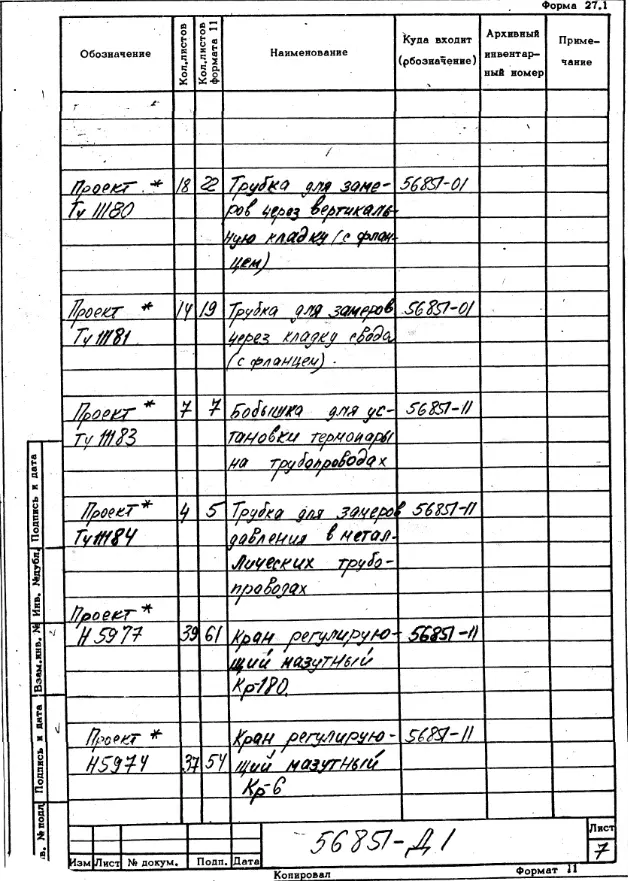 Форма 27.1
Обозначение Кол.листов Кол.листов формата 11 Наименование Куда входит (обозначение) Архивный инвентар-ный номер Приме-чание
Проект * 18 22 Трубка для заме- 56851-01
Ту 11180 ров через вертикаль-
ную кладку (с флан-
цем)
Проект * 14 19 Трубка для замеров 56851-01
Ту 11181 через кладку свода
(с фланцем).
Проект * 7 7 Бобышка для ус- 56851-11
Ту 11183 тановки термопары
на трубопроводах
Проект * 4 5 Трубка для замеров 56851-11
Ту 11184 давления в метал-
лических трубо-
проводах
Проект *
Н 5977 39 61 Кран регулирую- 56851-11
щий мазутный
Кр-180
Проект * Кран регулирую- 56851-11
Н5974 37 54 щий мазутный
Кр-6
Подпись и дата
Инв. №дубл.
Взам.инв. №
Подпись и дата
в. № подл
56851-Д1
Лист
7
Изм Лист № докум. Подп. Дата
Копировал Формат 11